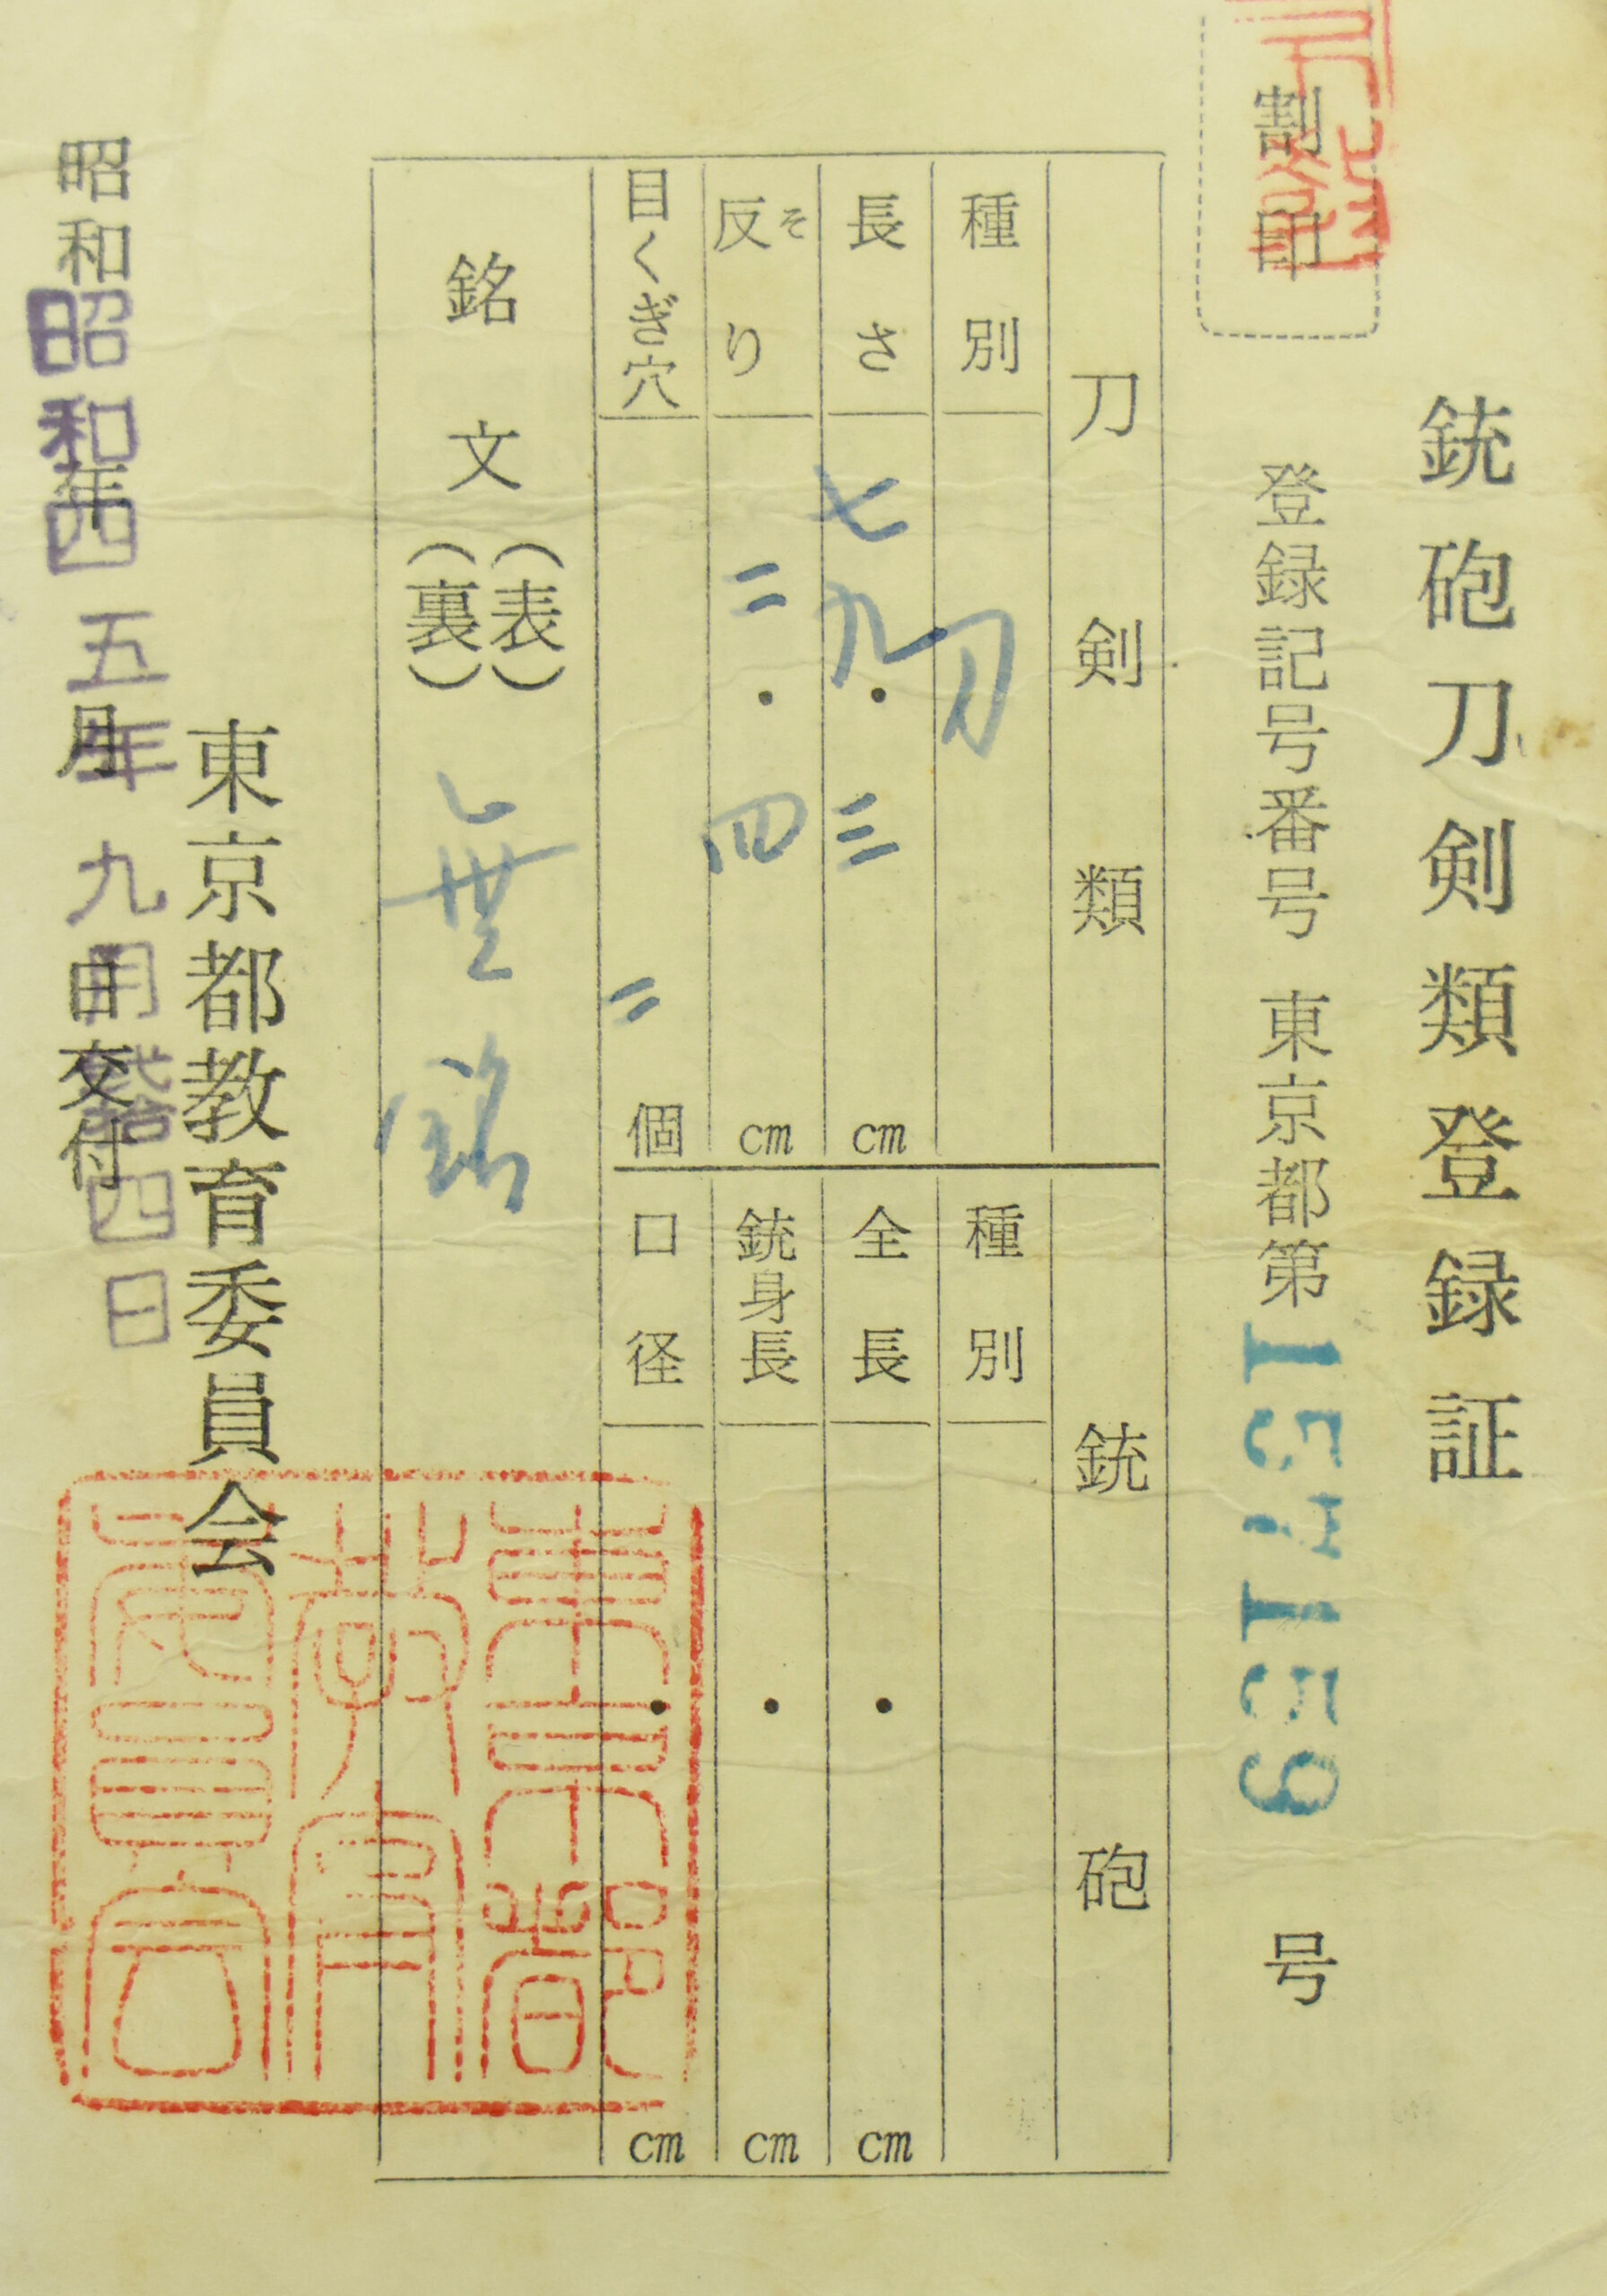 銃砲刀剣類登録証
割印
登録記号番号 東京都第157159号
刀剣類
種別 刀
長さ 七九・三 cm
反り そ 二・四 cm
目くぎ穴 二 個
銃砲
種別
全長 ・ cm
銃身長 ・ cm
口径 ・ cm
銘文 (表) (裏) 無銘
東京都教育委員会
昭和 年 月 日交付
昭和四五年九月弐拾四日